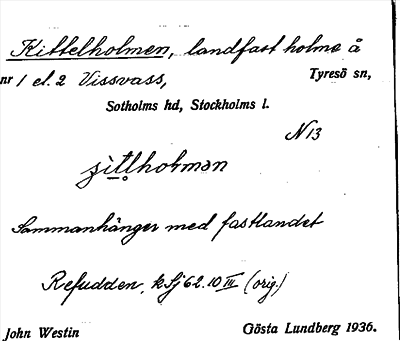 Kittelholmen, landfast holme å
nr 1 el. 2 Vissvass, Tyresö sn,
Sotholms hd, Stockholms l.
N13
Sammanhänger med fastlandet
Refudden, k Sj 62.10 III (orig.)
John Westin Gösta Lundberg 1936.